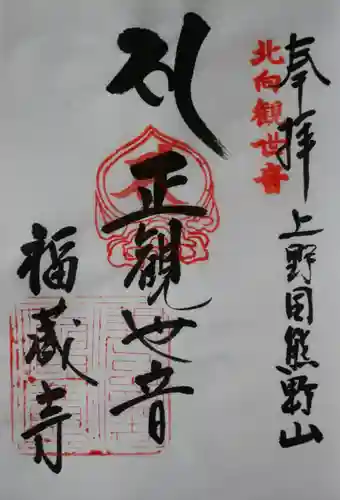 奉拝
北向観世音
上野国熊野山
正観世音
福蔵寺